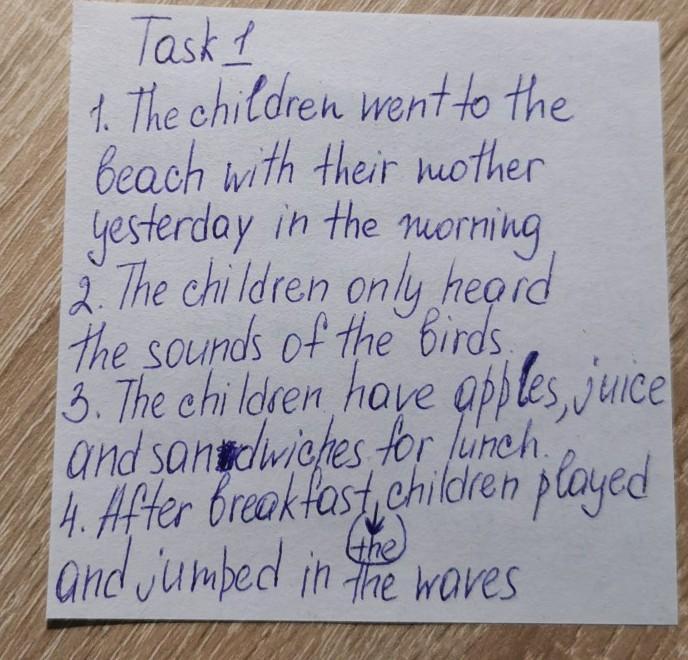 Task 1
1. The children went to the
beach with their mother
yesterday in the morning
2. The children only heard
the sounds of the birds.
3. The children have apples, juice
and sandwiches for lunch.
4. After breakfast, children played
the
and jumped in the waves